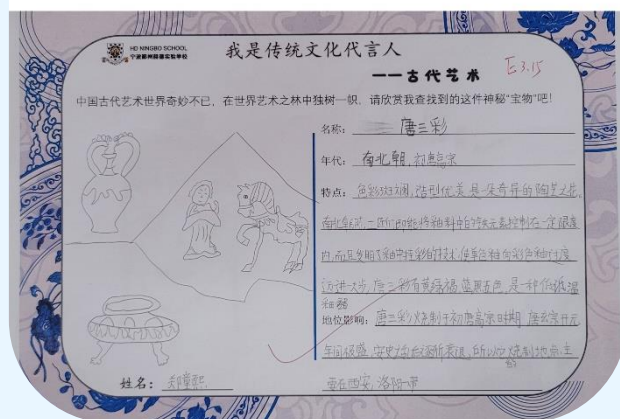 HD NINGBO SCHOOL
宁波鄞州赫德实验学校
我是传统文化代言人
——古代艺术
E 3.15
中国古代艺术世界奇妙不已，在世界艺术之林中独树一帜，请欣赏我查找到的这件神秘“宝物”吧！
名称：唐三彩
年代：南北朝，初唐高宗
特点：色彩斑斓，造型优美是一朵奇异的陶艺之花。
南北朝 能将釉料中的 元素控制在一定限度
内，而且发明了釉中挂彩的技术，使单色釉向彩色釉过度
迈进一大步，唐三彩有黄绿褐蓝黑五色，是一种低温
釉器
地位影响：唐三彩烧制于初唐高宗时期，唐玄宗开元
年间极盛，安史之乱后渐衰退，所以烧制地点主
要在西安，洛阳一带
姓名：郑童熙